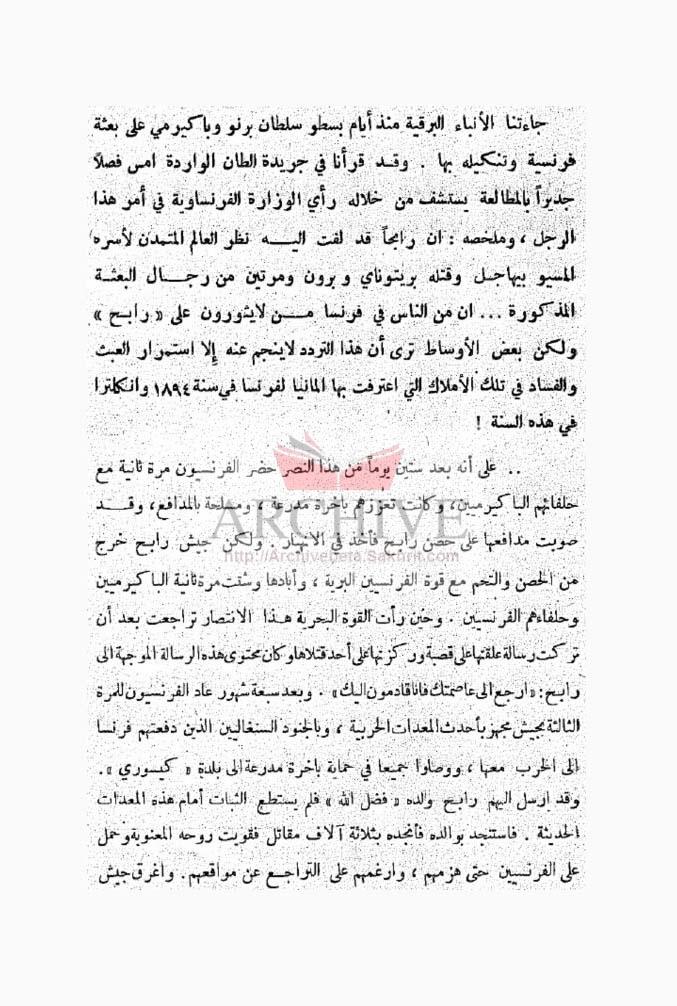 جاءتنا الأنباء البرقية منذ أيام بسطو سلطان برنو وباكيرمي على بعثة
فرنسية وتنكيله بها . وقد قرأنا في جريدة الطان الواردة امس فصلاً
جديراً بالمطالعة يستشف من خلاله رأي الوزارة الفرنساوية في أمر هذا
الرجل ، وملخصه : ان رابحاً قد لفت اليه نظر العالم المتمدن لأسره
المسيو بيهاجل وقتله بريتوناي وبرون ومرتين من رجال البعثة
المذكورة ... ان من الناس في فرنسا من لايثورون على « رابح »
ولكن بعض الأوساط ترى أن هذا التردد لاينجم عنه إلا استمرار العبث
والفساد في تلك الأملاك التي اعترفت بها المانيا لفرنسا في سنة ١٨٩٤ وانكلترا
في هذه السنة !
.. على أنه بعد ستين يوماً من هذا النصر حضر الفرنسيون مرة ثانية مع
حلفائهم الباكيرميين ، وكانت تعززهم باخرة مدرعة ، ومسلحة بالمدافع ، وقد
صوبت مدافعها على حصن رابح فأخذ في الانهيار . ولكن جيش رابح خرج
من الحصن والتحم مع قوة الفرنسيين البرية ، وأبادها وشتت مرة ثانية الباكيرميين
وحلفاءهم الفرنسيين . وحين رأت القوة البحرية هذا الانتصار تراجعت بعد أن
تركت رسالة علقتها على قصبة وركزتها على أحد قتلاها وكان محتوى هذه الرسالة الموجهة الى
رابح : « ارجع الى عاصمتك فاننا قادمون اليك » . وبعد سبعة شهور عاد الفرنسيون للمرة
الثالثة بجيش مجهز بأحدث المعدات الحربية ، وبالجنود السنغاليين الذين دفعتهم فرنسا
الى الحرب معها ، ووصلوا جميعا في حماية باخرة مدرعة الى بلدة « كيسوري » .
وقد ارسل اليهم رابح ولده « فضل الله » فلم يستطع الثبات أمام هذه المعدات
الحديثة . فاستنجد بوالده فأنجده بثلاثة آلاف مقاتل فقويت روحه المعنوية وحمل
على الفرنسيين حتى هزمهم ، وارغمهم على التراجع عن مواقعهم . واغرق جيش
ARCHIVE
http://Archivebeta.Sakhrit.com